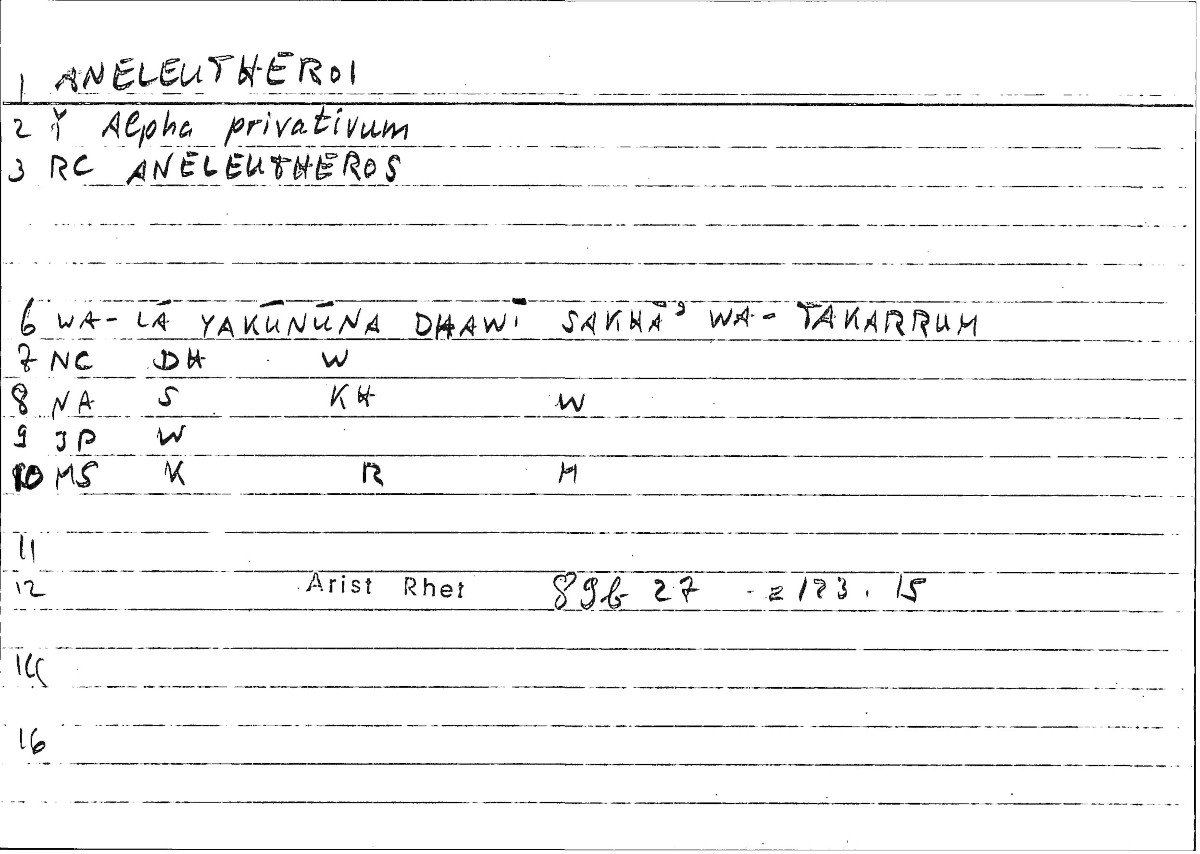 1 ANELEUTHEROI
2 Ϋ Alpha privativum
3 RC ANELEUTHEROS
6 WA-LĀ YAKŪNŪNA DHAWĪ SAKHĀʾ WA-TAKARRUM
7 NC DH W
8 NA S KH W
9 JP W
10 MS K R M
11
12 Arist Rhet 89b 27 = 123.15
14
16